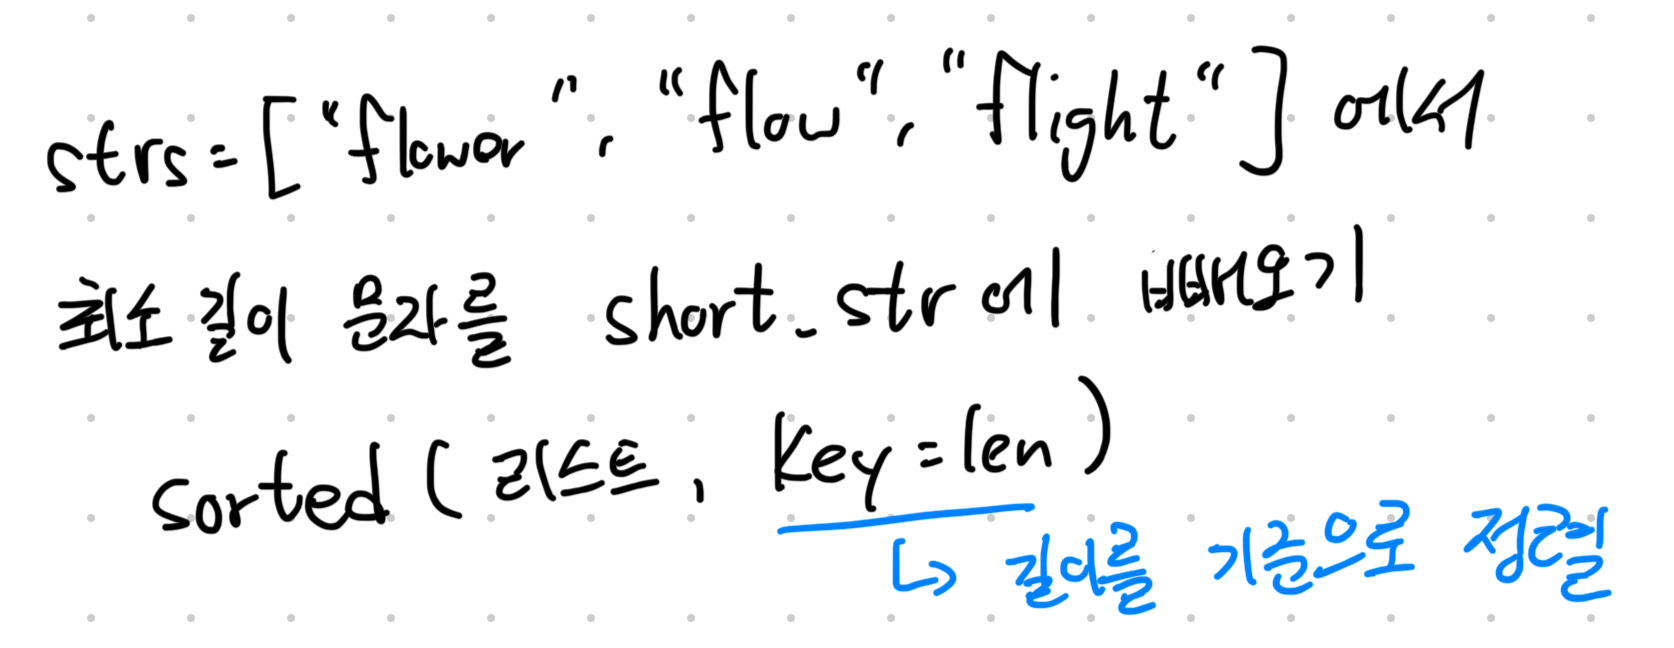 strs = ["flower", "flow", "flight"] 에서
최소 길이 문자를 short_str에 빼오기
sorted (리스트, key=len)
↳ 길이를 기준으로 정렬